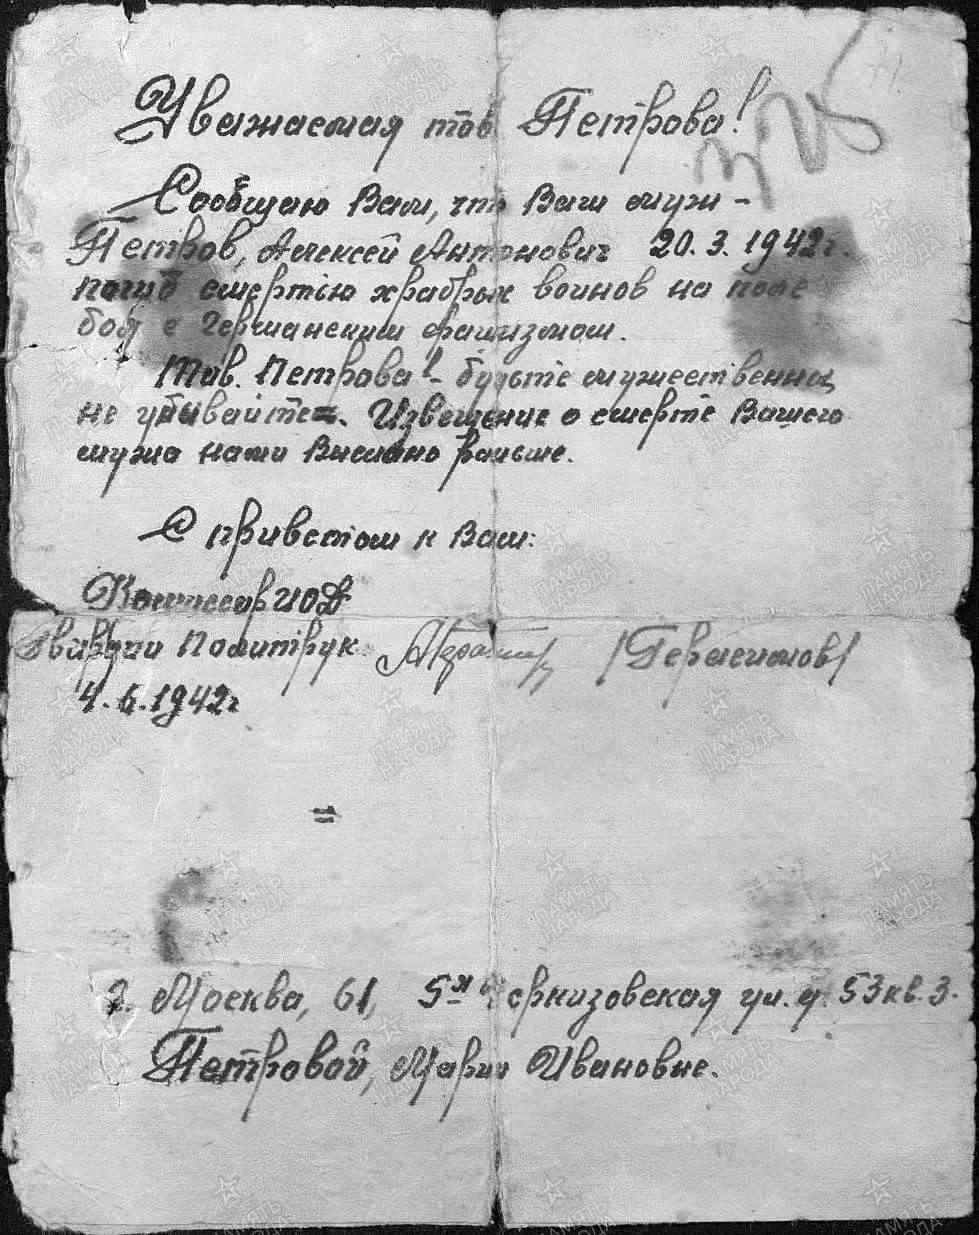 Уважаемая тов. Петрова!
Сообщаю Вам, что Ваш муж -
Петров, Алексей Антонович 20.3.1942г.
погиб смертью храбрых воинов на поле
боя с Германским фашизмом.
Тов. Петрова! - будьте мужественны,
не убывайте. Извещение о смерте Вашего
мужа нами выслано раньше.
С приветом к Вам:
Комиссар
Политрук /Герасимов/
4.6.1942г
=
г. Москва, 61, 5я ул. д. 53 кв. 3.
Петровой, Марии Ивановне.
ПАМЯТЬ
НАРОДА